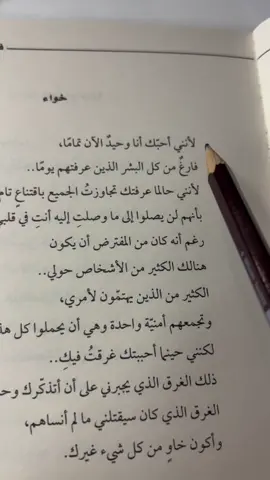 خواء
لأنني أحبّك أنا وحيدٌ الآن تمامًا،
فارغٌ من كل البشر الذين عرفتهم يومًا..
لأنني حالما عرفتك تجاوزتُ الجميع باقتناعٍ تام
بأنهم لن يصلوا إلى ما وصلتِ إليه أنتِ في قلبي
رغم أنه كان من المفترض أن يكون
هنالك الكثير من الأشخاص حولي..
الكثير من الذين يهتمّون لأمري،
وتجمعهم أمنيّة واحدة وهي أن يحملوا كل هذ
لكنني حينما أحببتك غرقتُ فيكِ..
ذلك الغرق الذي يجبرني على أن أتذكّرك وحـ
الغرق الذي كان سيقتلني ما لم أنساهم،
وأكون خاوٍ من كل شيء غيرك.